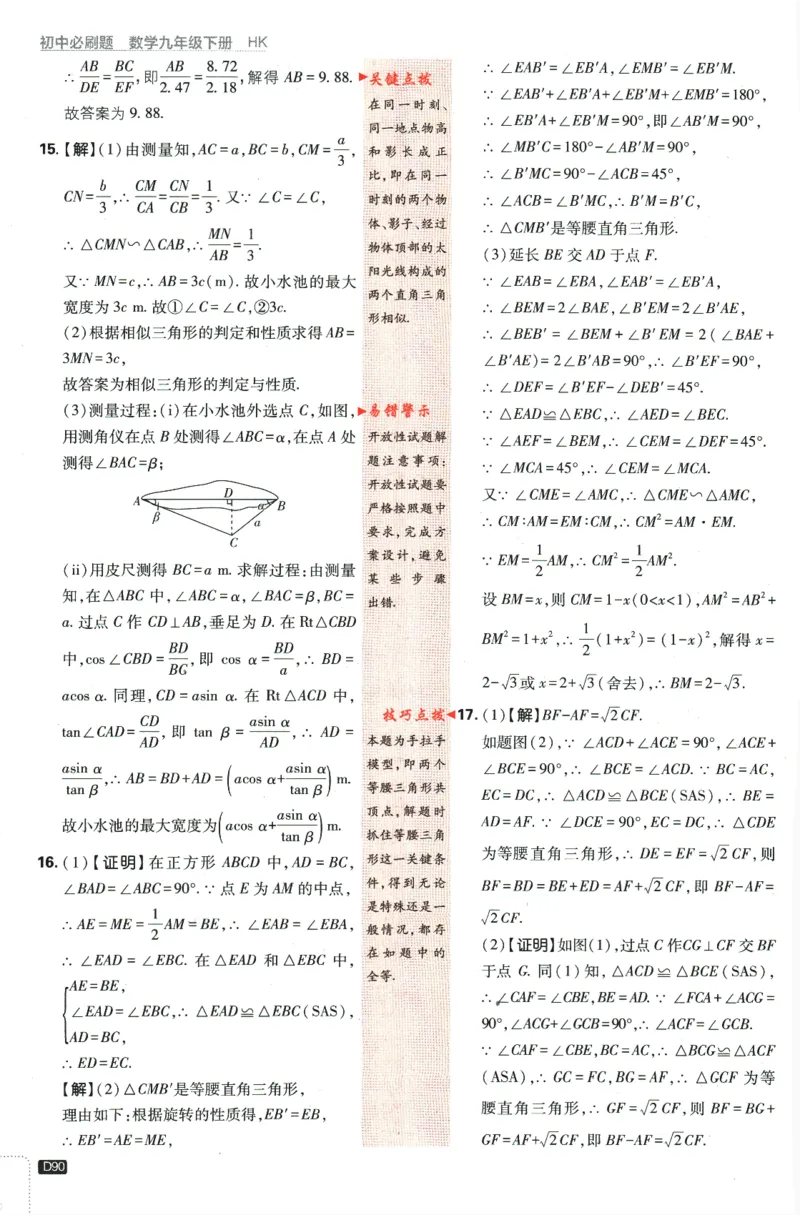 初中必刷题 数学九年级下册 HK
∴ AB/DE=BC/EF,即AB/2.47=8.72/2.18,解得 AB=9.88.
故答案为 9.88.
15.【解】(1)由测量知,AC=a,BC=b,CM=a/3,
CN=b/3,∴ CM/CA=CN/CB=1/3. 又∵ ∠C=∠C,
∴ △CMN∽△CAB,∴ MN/AB=1/3.
又∵ MN=c,∴ AB=3c(m). 故小水池的最大
宽度为 3c m. 故①∠C=∠C,②3c.
(2)根据相似三角形的判定和性质求得 AB=
3MN=3c,
故答案为相似三角形的判定与性质.
(3)测量过程:(i)在小水池外选点 C,如图,
用测角仪在点 B 处测得∠ABC=α,在点 A 处
测得∠BAC=β;
A D B
β α a
C
(ii)用皮尺测得 BC=a m. 求解过程:由测量
知,在△ABC 中,∠ABC=α,∠BAC=β,BC=
a. 过点 C 作 CD⊥AB,垂足为 D. 在 Rt△CBD
中,cos∠CBD=BD/BG,即 cos α=BD/a,∴ BD=
acos α. 同理,CD=asin α. 在 Rt△ACD 中,
tan∠CAD=CD/AD,即 tan β=asin α/AD,∴ AD=
asin α/tan β,∴ AB=BD+AD=(acos α+asin α/tan β) m.
故小水池的最大宽度为(acos α+asin α/tan β) m.
16.(1)【证明】在正方形 ABCD 中,AD=BC,
∠BAD=∠ABC=90°. ∵ 点 E 为 AM 的中点,
∴ AE=ME=1/2AM=BE,∴ ∠EAB=∠EBA,
∴ ∠EAD=∠EBC. 在△EAD 和△EBC 中,
{AE=BE,
∠EAD=∠EBC,∴ △EAD≌△EBC(SAS),
AD=BC,
∴ ED=EC.
【解】(2)△CMB′是等腰直角三角形,
理由如下:根据旋转的性质得,EB′=EB,
∴ EB′=AE=ME,
D90
关键点拨
在同一时刻、
同一地点物高
和影长成正
比,即在同一
时刻的两个物
体、影子、经过
物体顶部的太
阳光线构成的
两个直角三角
形相似.
易错警示
开放性试题解
题注意事项:
开放性试题要
严格按照题中
要求,完成方
案设计,避免
某些步骤
出错.
技巧点拨
本题为手拉手
模型,即两个
等腰三角形共
顶点,解题时
抓住等腰三角
形这一关键条
件,得到无论
是特殊还是一
般情况,都存
在如题中的
全等.
∴ ∠EAB′=∠EB′A,∠EMB′=∠EB′M.
∵ ∠EAB′+∠EB′A+∠EB′M+∠EMB′=180°,
∴ ∠EB′A+∠EB′M=90°,即∠AB′M=90°,
∴ ∠MB′C=180°-∠AB′M=90°,
∴ ∠B′MC=90°-∠ACB=45°,
∴ ∠ACB=∠B′MC,∴ B′M=B′C,
∴ △CMB′是等腰直角三角形.
(3)延长 BE 交 AD 于点 F.
∵ ∠EAB=∠EBA,∠EAB′=∠EB′A,
∴ ∠BEM=2∠BAE,∠B′EM=2∠B′AE,
∴ ∠BEB′=∠BEM+∠B′EM=2(∠BAE+
∠B′AE)=2∠B′AB=90°,∴ ∠B′EF=90°,
∴ ∠DEF=∠B′EF-∠DEB′=45°.
∵ △EAD≌△EBC,∴ ∠AED=∠BEC.
∵ ∠AEF=∠BEM,∴ ∠CEM=∠DEF=45°.
∵ ∠MCA=45°,∴ ∠CEM=∠MCA.
又∵ ∠CME=∠AMC,∴ △CME∽△AMC,
∴ CM∶AM=EM∶CM,∴ CM²=AM·EM.
∵ EM=1/2AM,∴ CM²=1/2AM².
设 BM=x,则 CM=1-x(0<x<1),AM²=AB²+
BM²=1+x²,∴ 1/2(1+x²)=(1-x)²,解得 x=
2-√3或 x=2+√3(舍去),∴ BM=2-√3.
17.(1)【解】BF-AF=√2CF.
如题图(2),∵ ∠ACD+∠ACE=90°,∠ACE+
∠BCE=90°,∴ ∠BCE=∠ACD. ∵ BC=AC,
EC=DC,∴ △ACD≌△BCE(SAS),∴ BE=
AD=AF. ∵ ∠DCE=90°,EC=DC,∴ △CDE
为等腰直角三角形,∴ DE=EF=√2CF,则
BF=BD=BE+ED=AF+√2CF,即 BF-AF=
√2CF.
(2)【证明】如图(1),过点 C 作CG⊥CF 交 BF
于点 G. 同(1)知,△ACD≌△BCE(SAS),
∴ ∠CAF=∠CBE,BE=AD. ∵ ∠FCA+∠ACG=
90°,∠ACG+∠GCB=90°,∴ ∠ACF=∠GCB.
∵ ∠CAF=∠CBE,BC=AC,∴ △BCG≌△ACF
(ASA),∴ GC=FC,BG=AF,∴ △GCF 为等
腰直角三角形,∴ GF=√2CF,则 BF=BG+
GF=AF+√2CF,即 BF-AF=√2CF.